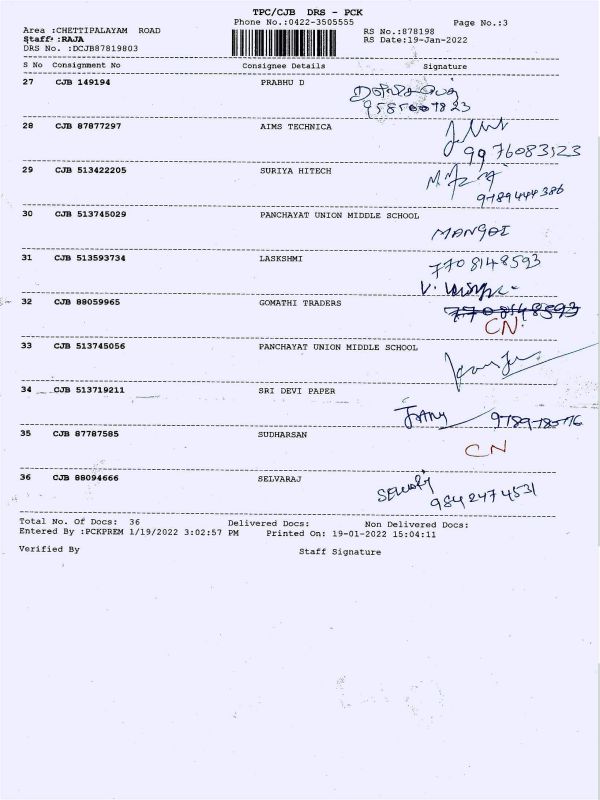 TPC/CJB DRS - PCK
Phone No.:0422-3505555
Page No.:3
Area :CHETTIPALAYAM ROAD
RS No.:878198
Staff :RAJA
RS Date:19-Jan-2022
DRS No. :DCJB87819803
S No Consignment No Consignee Details Signature
27 CJB 149194 PRABHU D
28 CJB 87877297 AIMS TECHNICA
9976083123
29 CJB 513422205 SURIYA HITECH
9789444386
30 CJB 513745029 PANCHAYAT UNION MIDDLE SCHOOL
MANGAI
31 CJB 513593734 LASKSHMI
7708148593
32 CJB 88059965 GOMATHI TRADERS
7708148593
CN
33 CJB 513745056 PANCHAYAT UNION MIDDLE SCHOOL
34 CJB 513719211 SRI DEVI PAPER
35 CJB 87787585 SUDHARSAN
CN
36 CJB 88094666 SELVARAJ
9842474531
Total No. Of Docs: 36 Delivered Docs: Non Delivered Docs:
Entered By :PCKPREM 1/19/2022 3:02:57 PM Printed On: 19-01-2022 15:04:11
Verified By Staff Signature